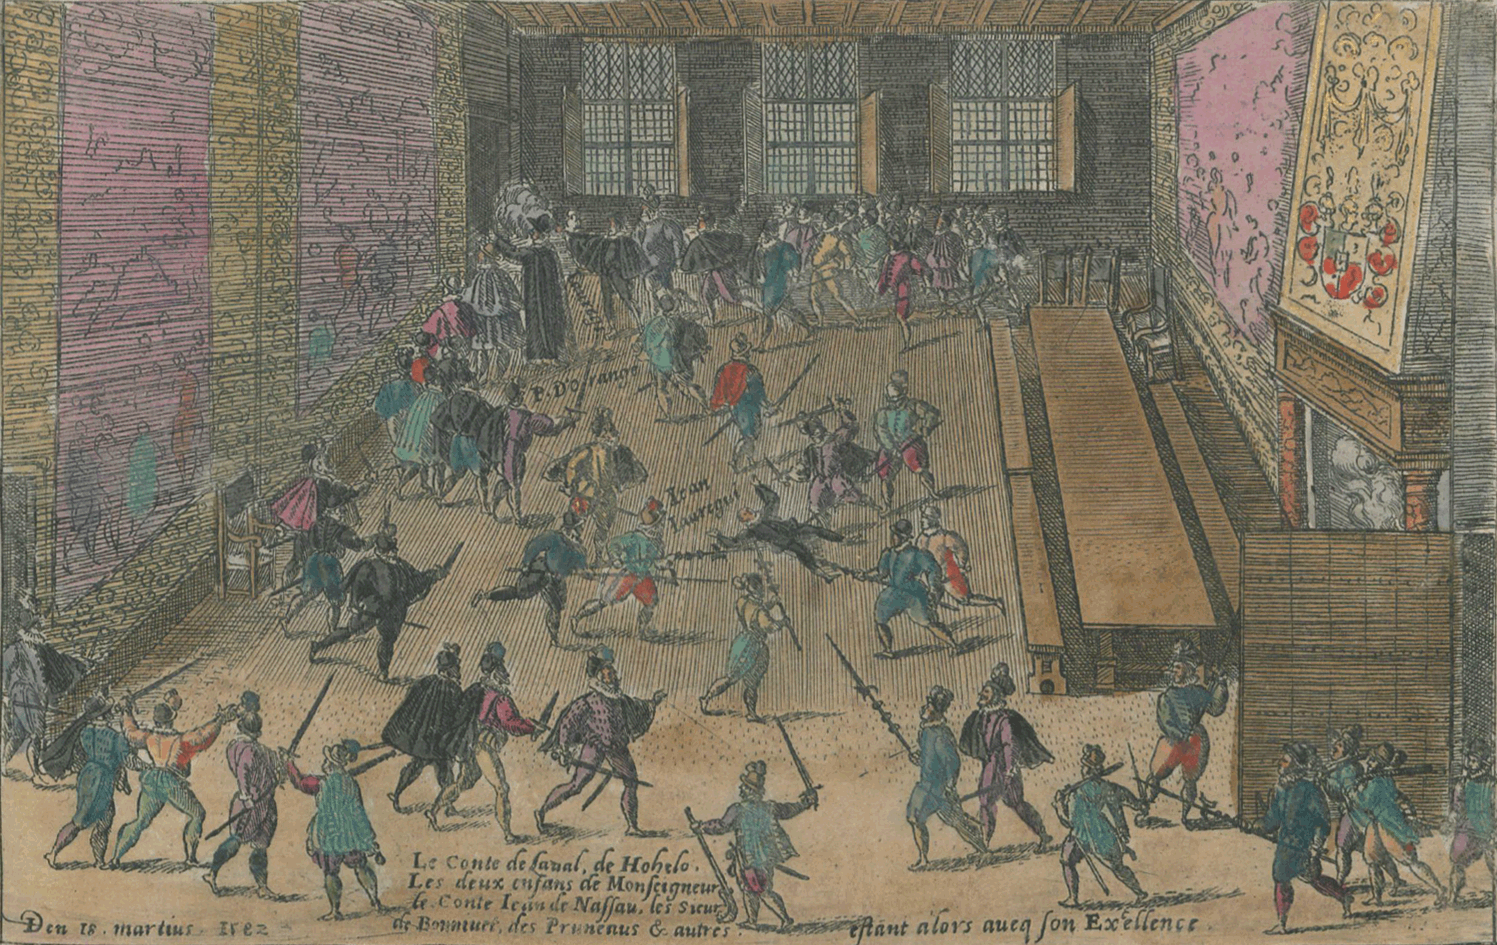 P. D'Orange
Ican
Iauregui
Le Conte de Laual, de Hohelo.
Les deux enfans de Monseigneur
le Conte Iean de Nassau, les Sieurs
de Bonniuet, des Pruneaus & autres.
estant alors aueq son Excellence.
Den 18. martius. 1582